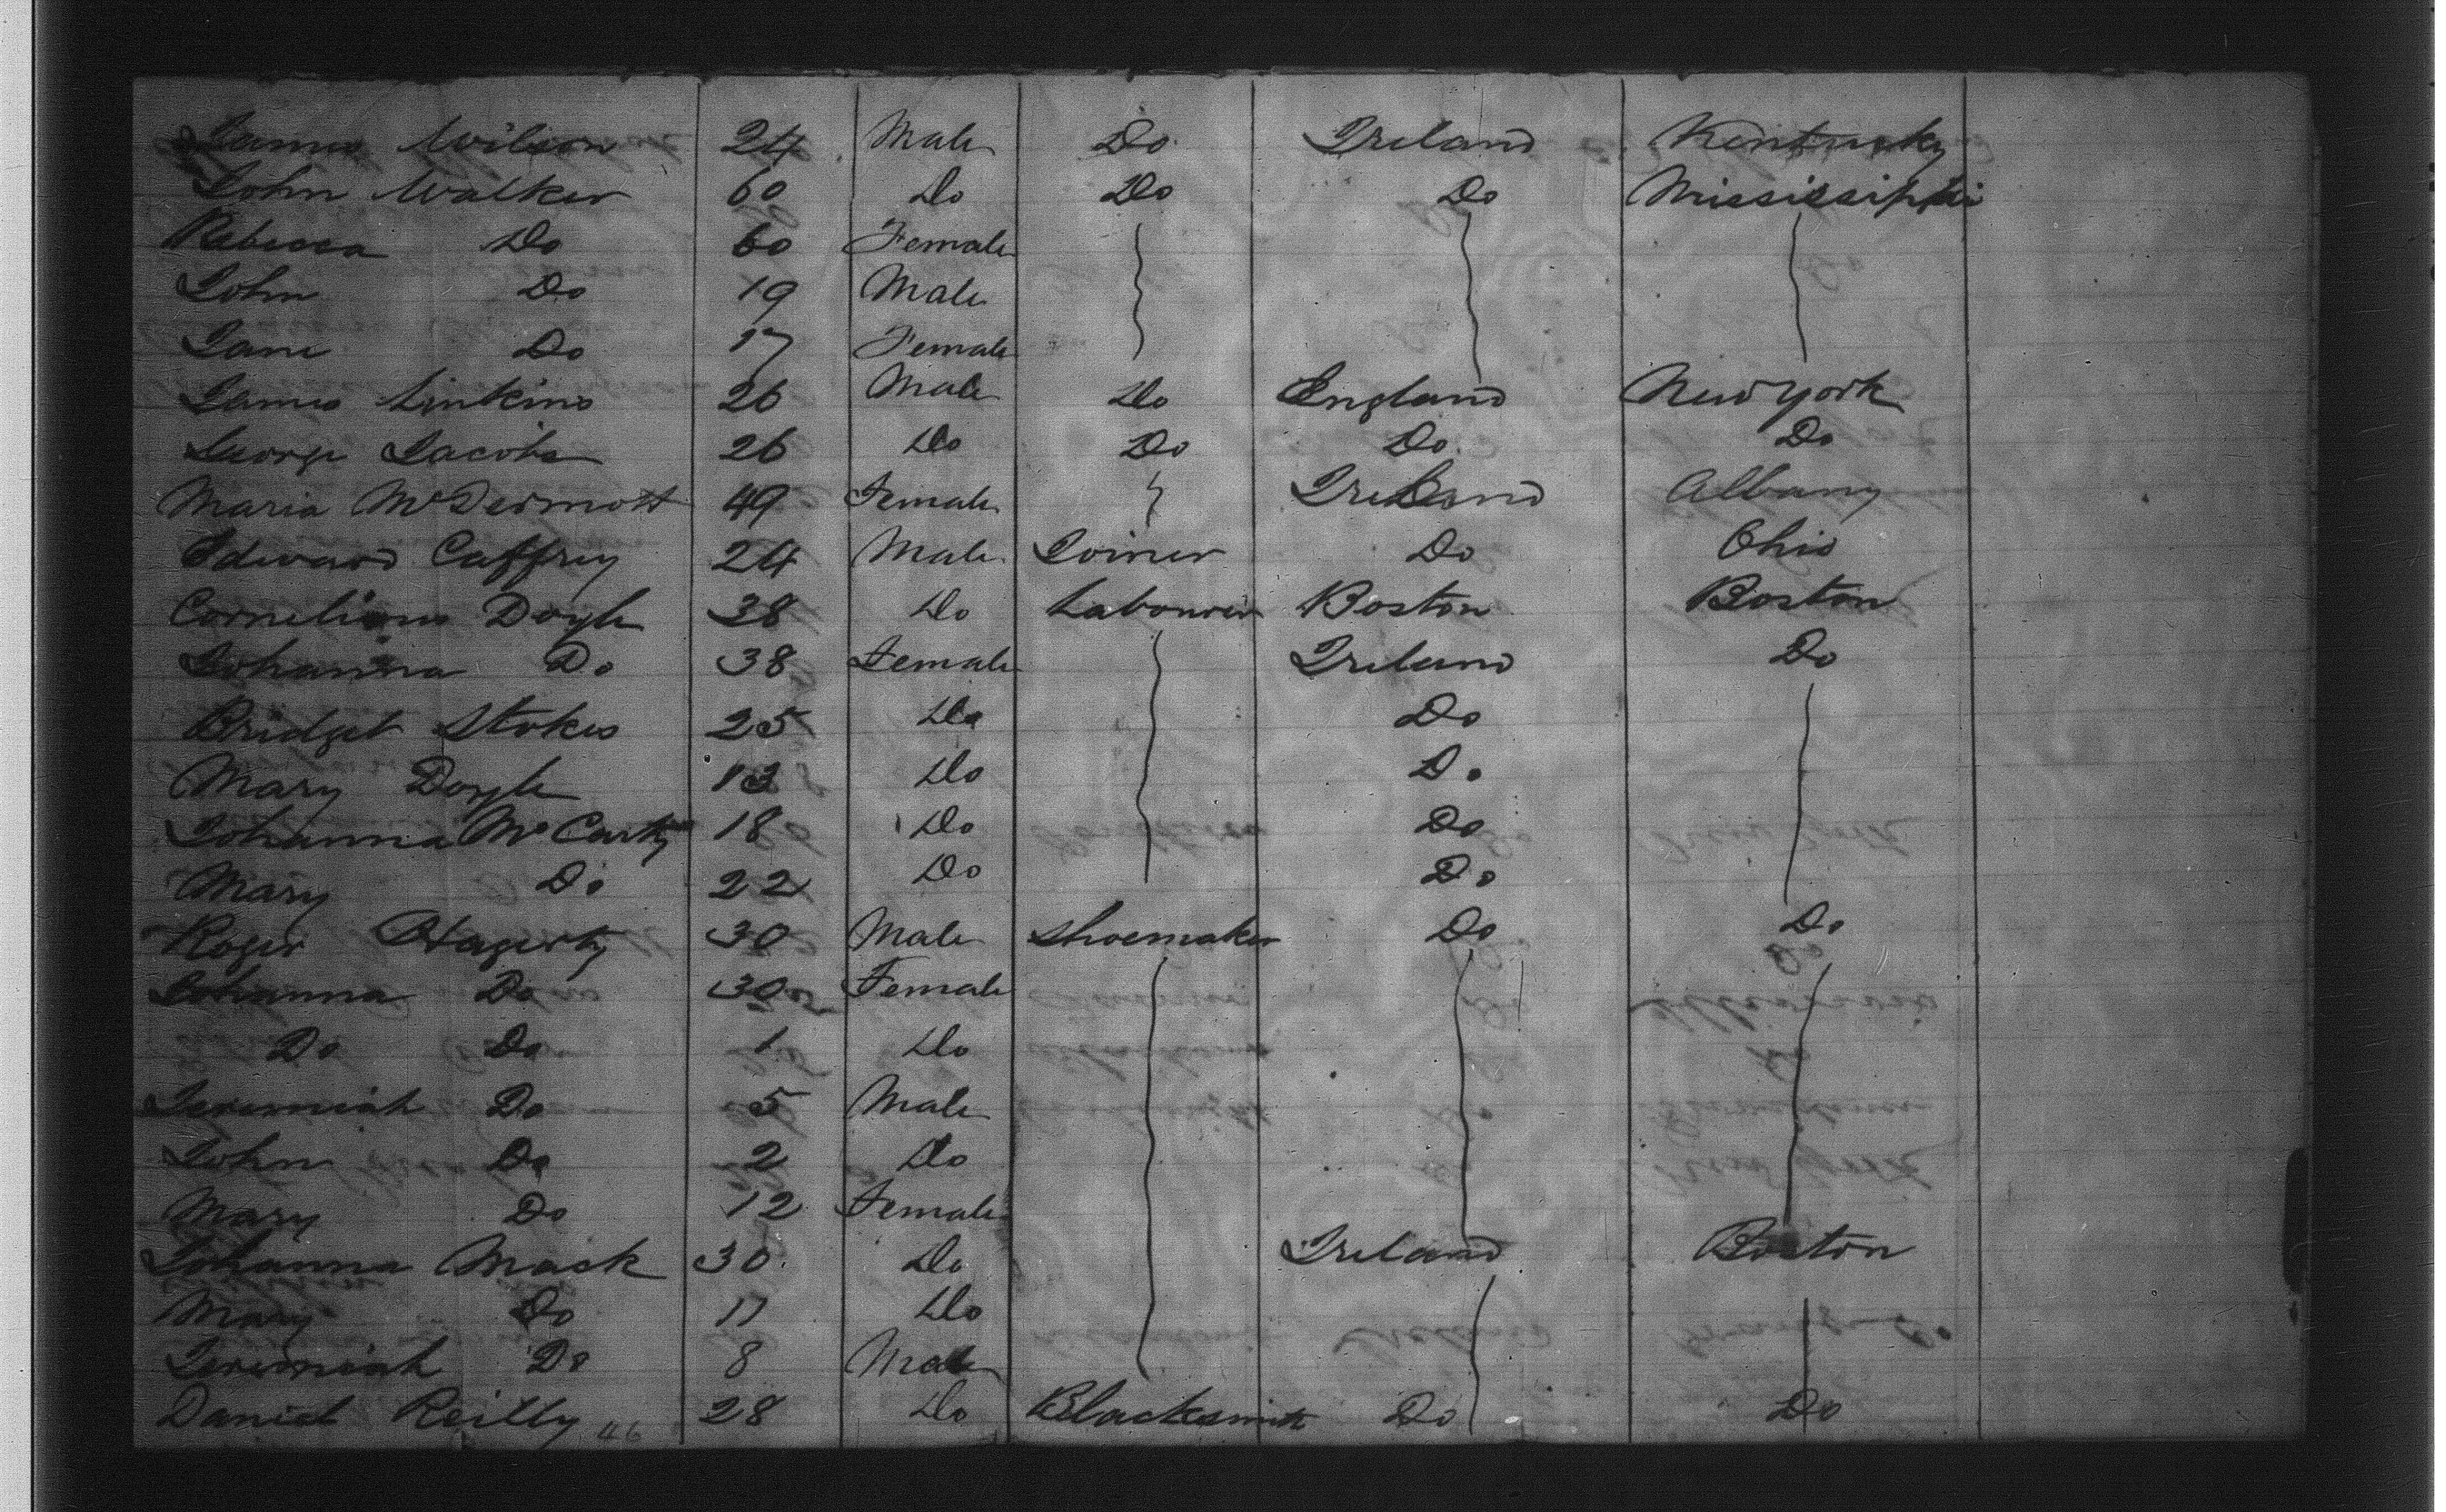 James Wilson 24 Male Do Ireland Kentucky
John Walker 60 Do Do Do Mississippi
Rebecca Do 60 Female
John Do 19 Male
Jane Do 17 Female
James Linkins 26 Male Do England New York
George Jacobs 26 Do Do Do Do
Maria McDermott 49 Female Ireland Albany
Edward Caffrey 24 Male Joiner Do Ohio
Cornelious Doyle 38 Do Labourer Boston Boston
Johanna Do 38 Female Ireland Do
Bridget Stokes 25 Do Do
Mary Doyle 13 Do Do
Johanna McCarty 18 Do Do
Mary Do 22 Do Do
Roger Hagerty 30 Male Shoemaker Do Do
Johanna Do 30 Female
Do Do 1 Do
Jeremiah Do 5 Male
John Do 2 Do
Mary Do 12 Female
Johanna Mack 30 Do Ireland Boston
Mary Do 11 Do
Jeremiah Do 8 Male
Daniel Reilly 46 28 Do Blacksmith Do Do